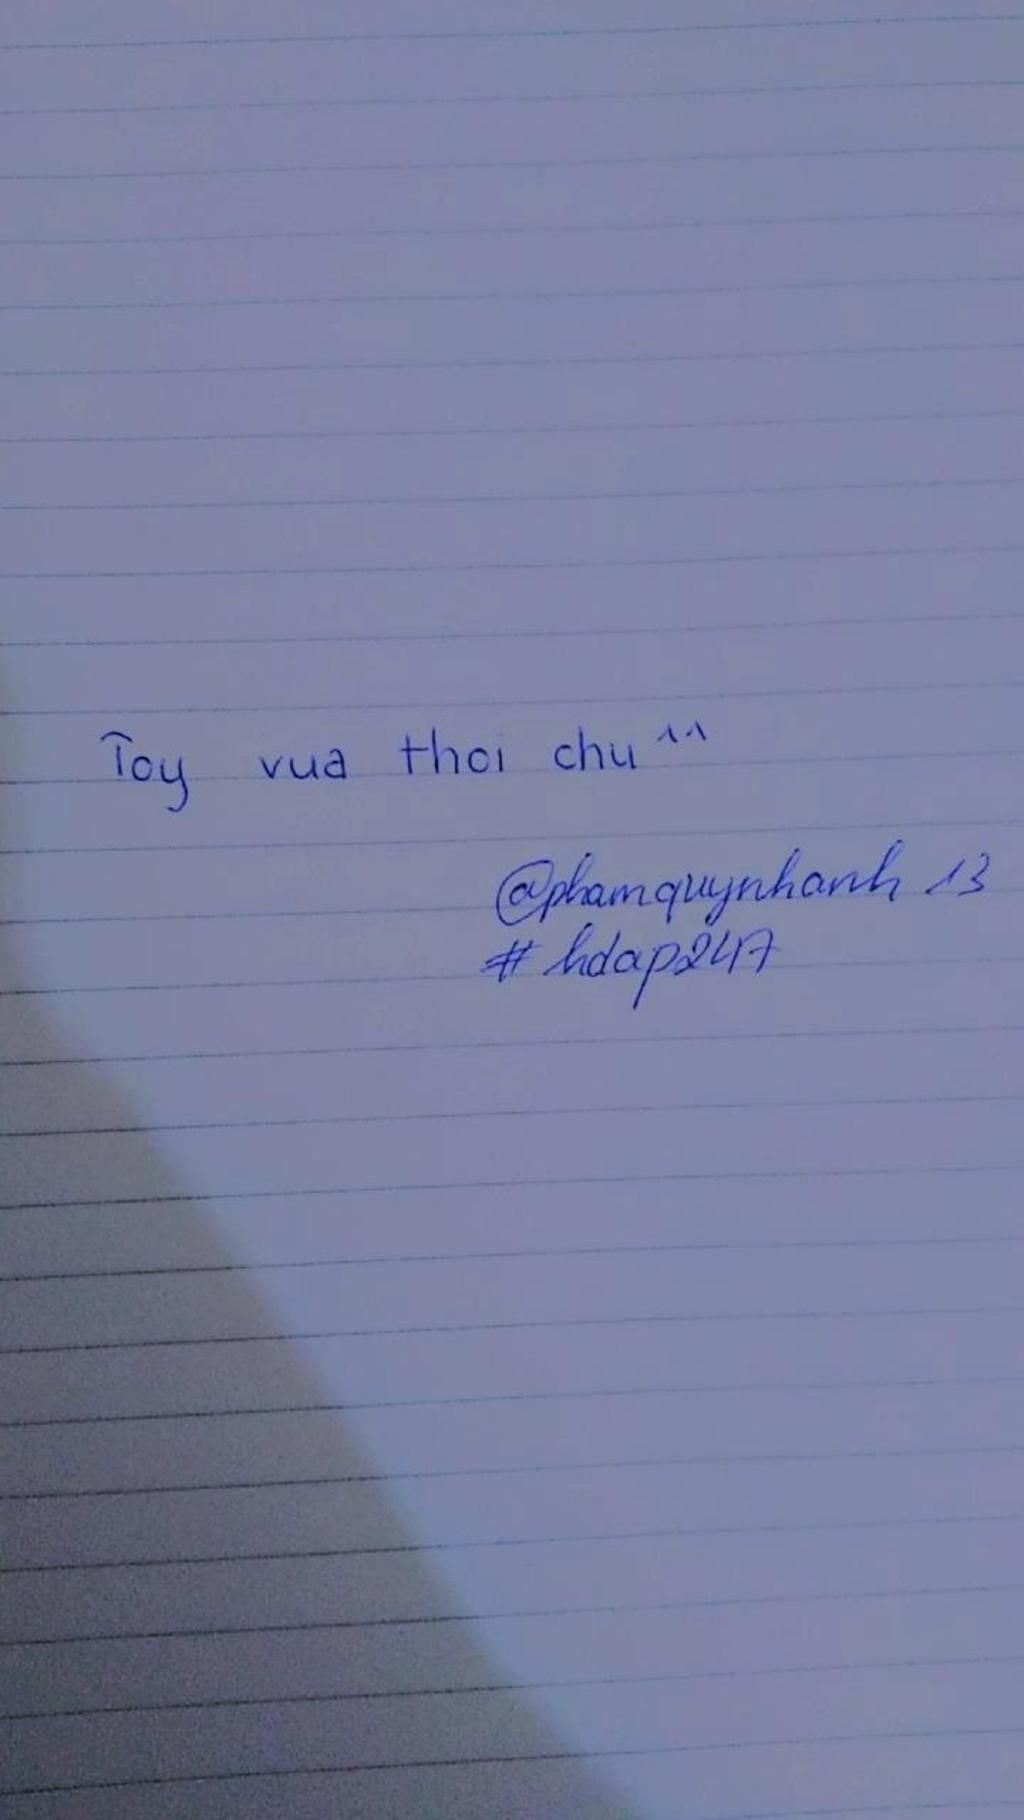 Toy vua thoi chu ^^
@phamquynhanh 13
# hdap247